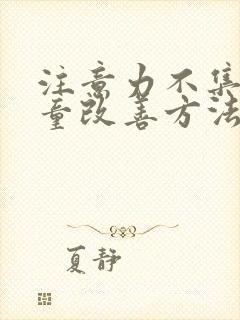 注意力不集
童改善方法
夏静